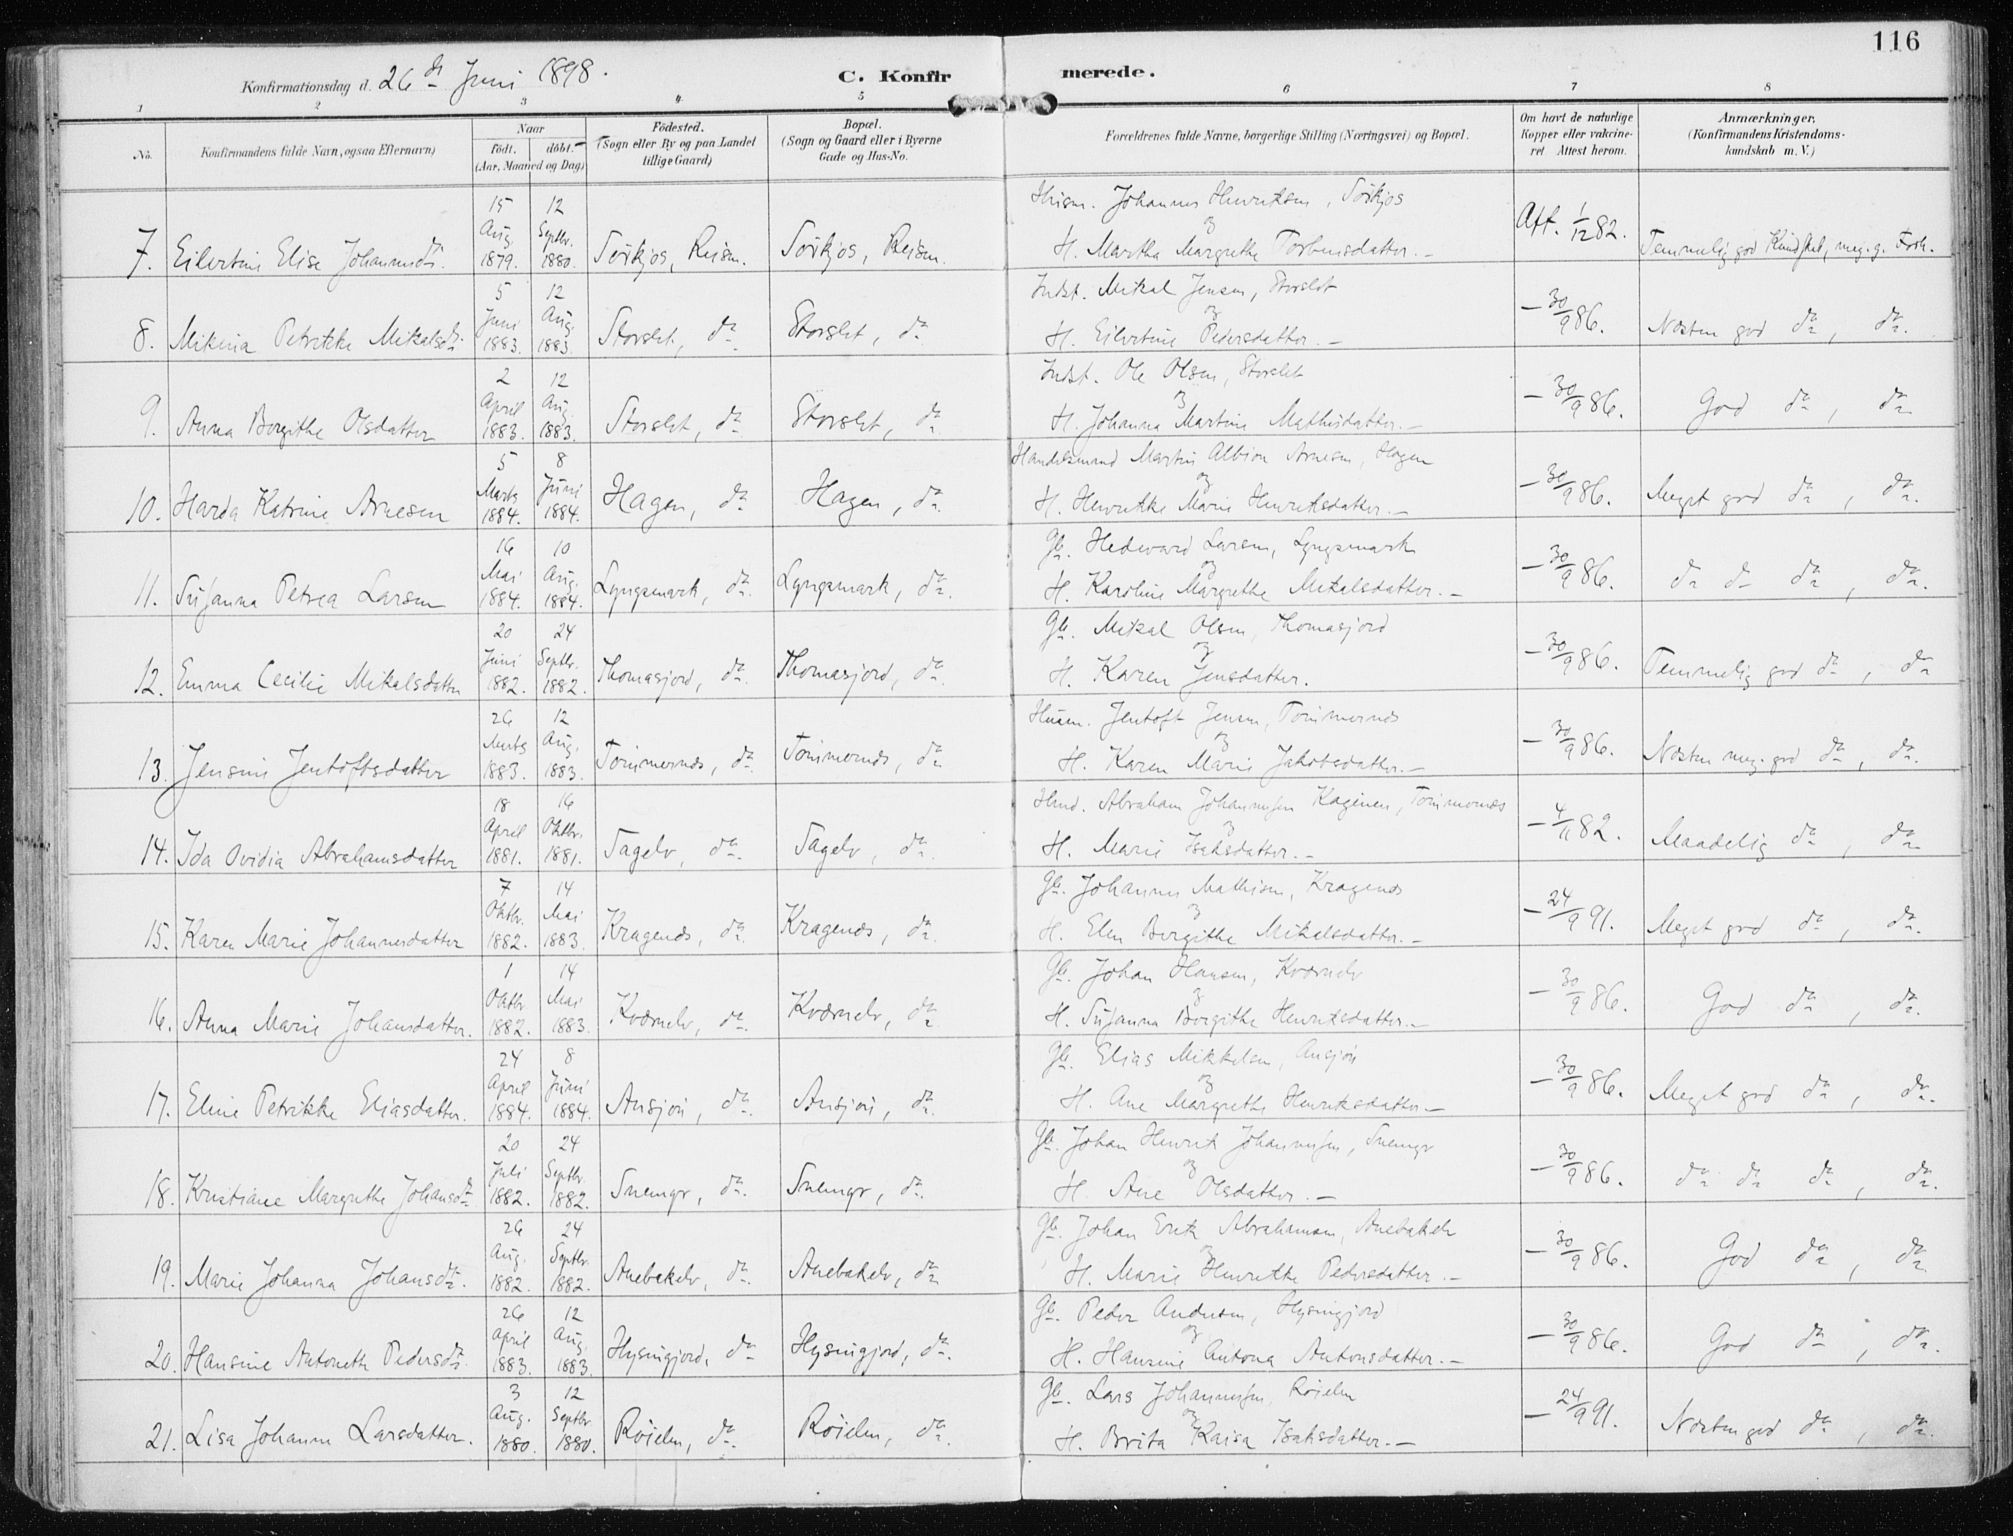 116
Konfirmationsdag d. 26de Juni 1898.
C. Konfirmerede.
1 2 3 4 5 6 7 8
No. Konfirmandens fulde Navn, ogsaa Efternavn) Naar födt. döbt. (Aar, Maaned og Dag) Födested. (Sogn eller By og paa Landet tillige Gaard) Bopæl. (Sogn og Gaard eller i Byerne Gade og Hus-No. Forældrenes fulde Navne, borgerlige Stilling (Næringsvei) og Bopæl. Om havt de naturlige Kopper eller vakcineret. Attest herom. Anmærkninger. (Konfirmandens Kristendomskundskab m. V.)
7. Eilertine Elise Johannesdr. 15 Aug. 1879. 12 Septbr. 1880. Sørkjos, Reisen. Sørkjos, Reisen. Husm. Johannes Henriksen, Sørkjos og H. Martha Margrethe Torbensdatter.- Att. 1/12 82. Temmelig god Kundskab, meg. g. Forh.
8. Mikina Petrikke Mikalsdr. 5 Juni 1883. 12 Aug. 1883. Storslet, do. Storslet, do. Indst. Mikal Jensen, Storslet og H. Eilertine Pedersdatter.- - 30/9 86. Næsten god do, do.
9. Anna Bergithe Olsdatter 2 April 1883. 12 Aug. 1883. Storslet, do. Storslet, do. Indst. Ole Olsen, Storslet og H. Johanna Martine Mathisdatter.- - 30/9 86. God do, do.
10. Harda Katrine Arnesen 5 Marts 1884. 8 Juni 1884. Hagen, do. Hagen, do. Handelsmand Martin Albion Arnesen, Hagen og H. Henrikke Marie Henriksdatter.- - 30/9 86. Meget god do, do.
11. Susanna Petrea Larsen 16 Mai 1884. 10 Aug. 1884. Lyngsmark, do. Lyngsmark, do. Gb. Hedevard Larsen, Lyngsmark og H. Karoline Margrethe Mikalsdatter.- - 30/9 86. do do do, do.
12. Emma Cecilie Mikalsdatter 20 Juni 1882. 24 Septbr. 1882. Thomasjord, do. Thomasjord, do. Gb. Mikal Olsen, Thomasjord og H. Karen Jensdatter. - 30/9 86. Temmelig god do, do
13. Jensine Jentoftsdatter 26 Marts 1883. 12 Aug. 1883. Tømmernes, do. Tømmernes, do. Husm. Jentoft Jensen, Tømmernes og H. Karen Marie Jakobsdatter.- - 30/9 86. Næsten meg. god do, do.
14. Ida Ovidia Abrahamsdatter 18 April 1881. 16 Oktbr. 1881. Tagelv, do. Tagelv, do. Hmd. Abraham Johannesen Kaginen, Tømmernæs og H. Marie Isaksdatter.- - 4/11 82. Maadelig do, do
15. Karen Marie Johannesdatter 7 Oktbr. 1882. 14 Mai 1883. Kragenæs, do. Kragenæs, do. Gb. Johannes Mathisen, Kragenæs og H. Elen Bergithe Mikalsdatter.- - 24/9 91. Meget god do, do.
16. Anna Marie Johansdatter. 1 Oktbr 1882. 14 Mai 1883. Kværnelv, do. Kværnelv, do. Gb. Johan Hansen, Kværnelv og H. Susanna Bergithe Henriksdatter.- - 30/9 86. God do, do.
17. Eline Petrikke Eliasdatter. 24 April 1884. 8 Juni 1884. Ansjøn, do. Ansjøn, do. Gb. Elias Mikkelsen, Ansjøn og H. Ane Margrethe Henriksdatter.- - 30/9 86. Meget god do, do.
18. Kristiane Margrethe Johansdr. 20 Juli 1882. 24 Septbr. 1882. Snemyr, do. Snemyr, do. Gb. Johan Henrik Johannesen, Snemyr og H. Ane Olsdatter.- - 30/9 86. do do do, do.
19. Marie Johanna Johansdr. 26 Aug. 1882. 24 Septbr. 1882. Anebakelv, do. Anebakelv, do. Gb. Johan Erik Abrahamsen, Anebakelv og H. Marie Henrikke Pedersdatter.- - 30/9 86. God do, do
20. Hansine Antonette Pedersdr. 26 April 1883. 12 Aug. 1883. Hysingjord, do. Hysingjord, do. Gb. Peder Andersen, Hysingjord og H. Hansine Antona Antonsdatter.- - 30/9 86. God do, do.
21. Lisa Johanne Larsdatter. 3 Aug. 1880. 12 Septbr. 1880. Røielen, do. Røielen, do. Gb. Lars Johannesen, Røielen og H. Brita Kaisa Isaksdatter.- - 24/9 91. Næsten god do, do.